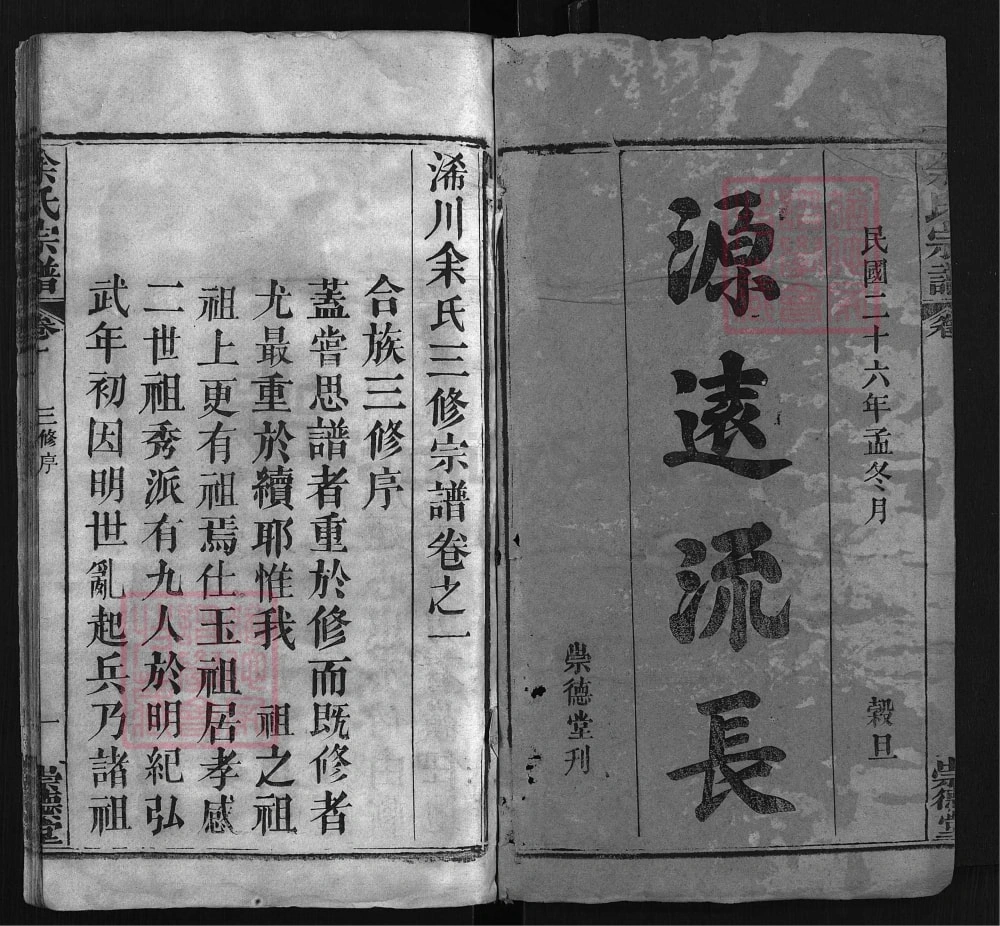 民國二十六年孟冬月 穀旦
源遠流長
崇德堂刊
浠川余氏三修宗譜卷之一
合族三修序
蓋嘗思譜者重於修而既修者
尤最重於續耶惟我 祖之祖
祖上更有祖焉仕玉祖居孝感
二世祖秀派有九人於明紀弘
武年初因明世亂起兵乃諸祖
余氏宗譜 卷一 三修序 一 崇德堂